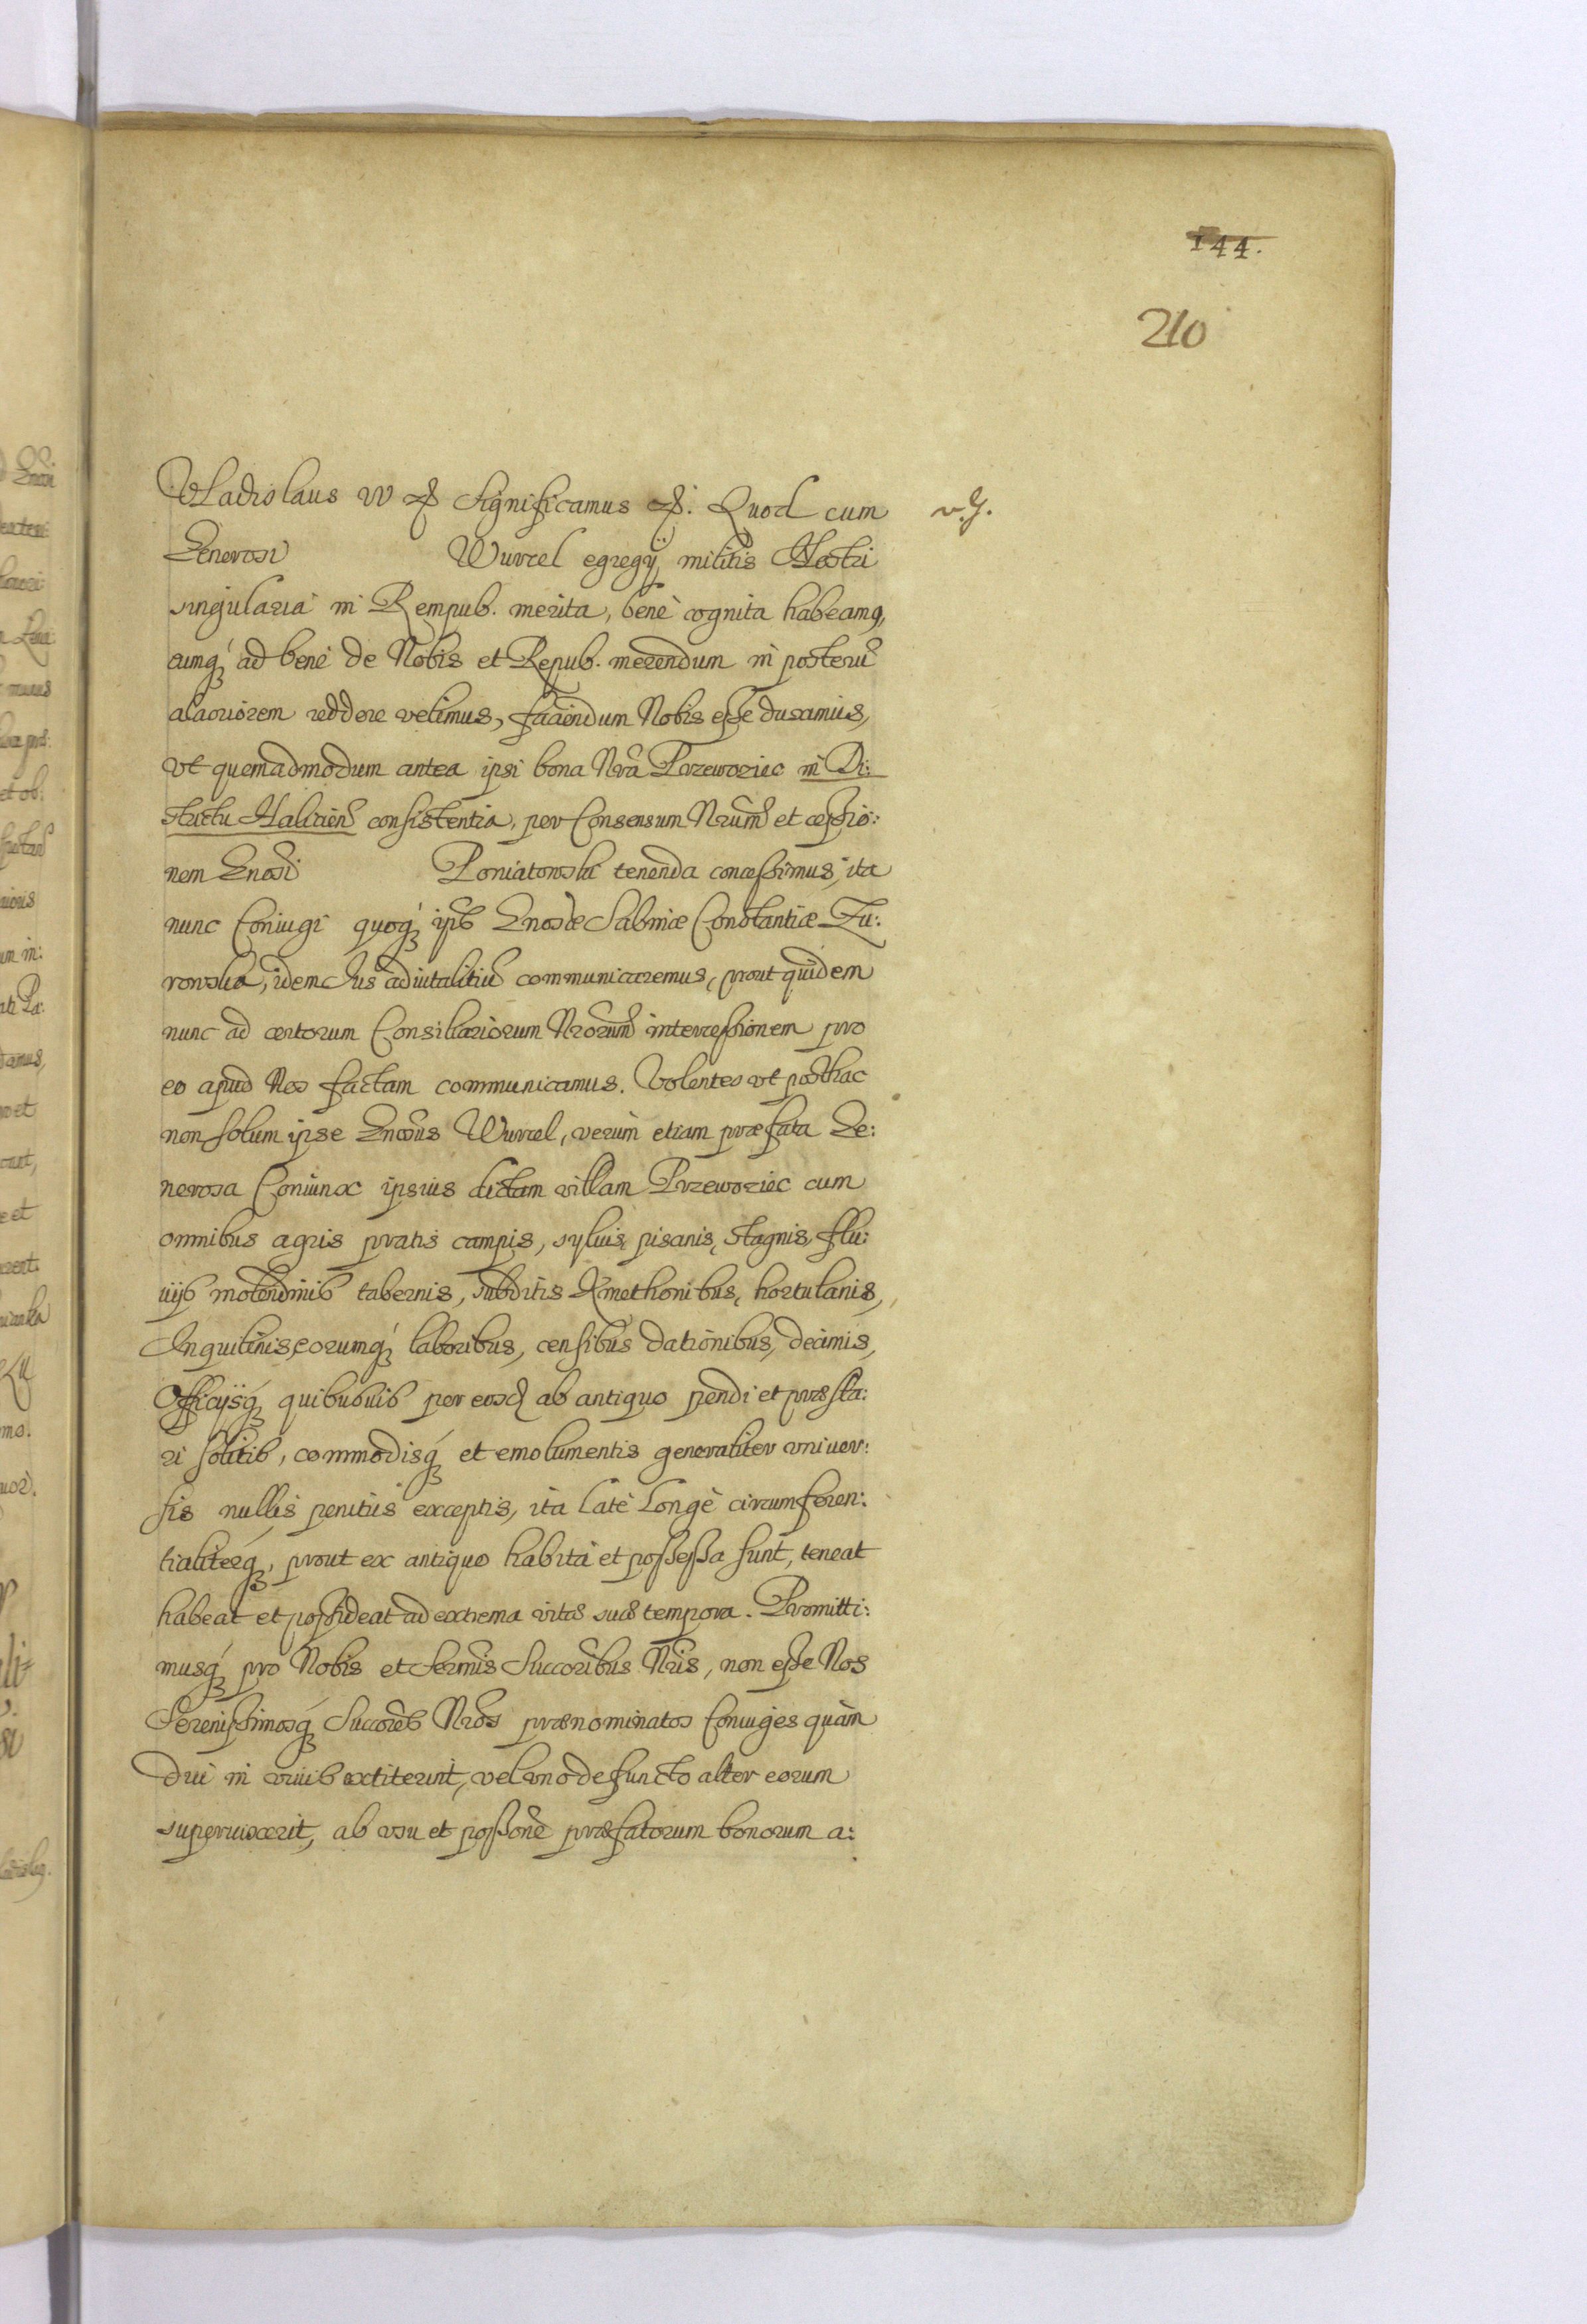 144.
210
Vladislaus IV &c Significamus &c. Quod cum
v. g.
Generosi Wurcel egregij militis Nostri
singularia in Rempub. merita, benè cognita habeamq,
eumq́ ad benè de Nobis et Repub. merendum in posterũ
alacriorem reddere velimus, faciendum Nobis esse duximus,
vt quemadmodum antea ipsi bona Nrã Przewoziec in Di:
strictu Haliciens̃ consistentia, per Consensum Nrũm et cessio:
nem Gnosi Poniatowski tenenda concessimus, ita
nunc Coniugi quoq́ ips̃ Gnosæ Sabinæ Constantiæ Zu:
rowska, idem Ius aduitalitiũ communicaremus, prout quidem
nunc ad certorum Consiliariorum Nrorum intercessionem pro
eo apud Nos factam communicamus. Volentes vt posthac
non solum ipse Gnosus Wurcel, verùm etiam præfata Ge:
nerosa Coniunx ipsius dictam villam Przewoziec cum
omnibus agris pratis campis, syluis, pisanis, stagnis, flu:
uijs molendinis tabernis, subditis Kmethonibus, hortulanis,
Inquilinis, eorumq́ laboribus, censibus dationibus, decimis,
Officijsq́ quibusuis per eosd ab antiquo pendi et præsta:
ri solitis, commodisq́ et emolumentis generaliter vniuer:
sis nullis penitùs exceptis, ita latè longè circumferen:
tialiterq́, prout ex antiquo habita et possessa sunt, teneat
habeat et possideat ad extrema vitæ suæ tempora. Promitti:
musq́ pro Nobis et Sermis Succoribus Nris, non esse Nos
Serenissimosq́ Succores Nros prænominatos Coniuges quàm
diu in viuis extiterint, vel vno defuncto alter eorum
superuixerit, ab vsu et possone præfatorum bonorum a: